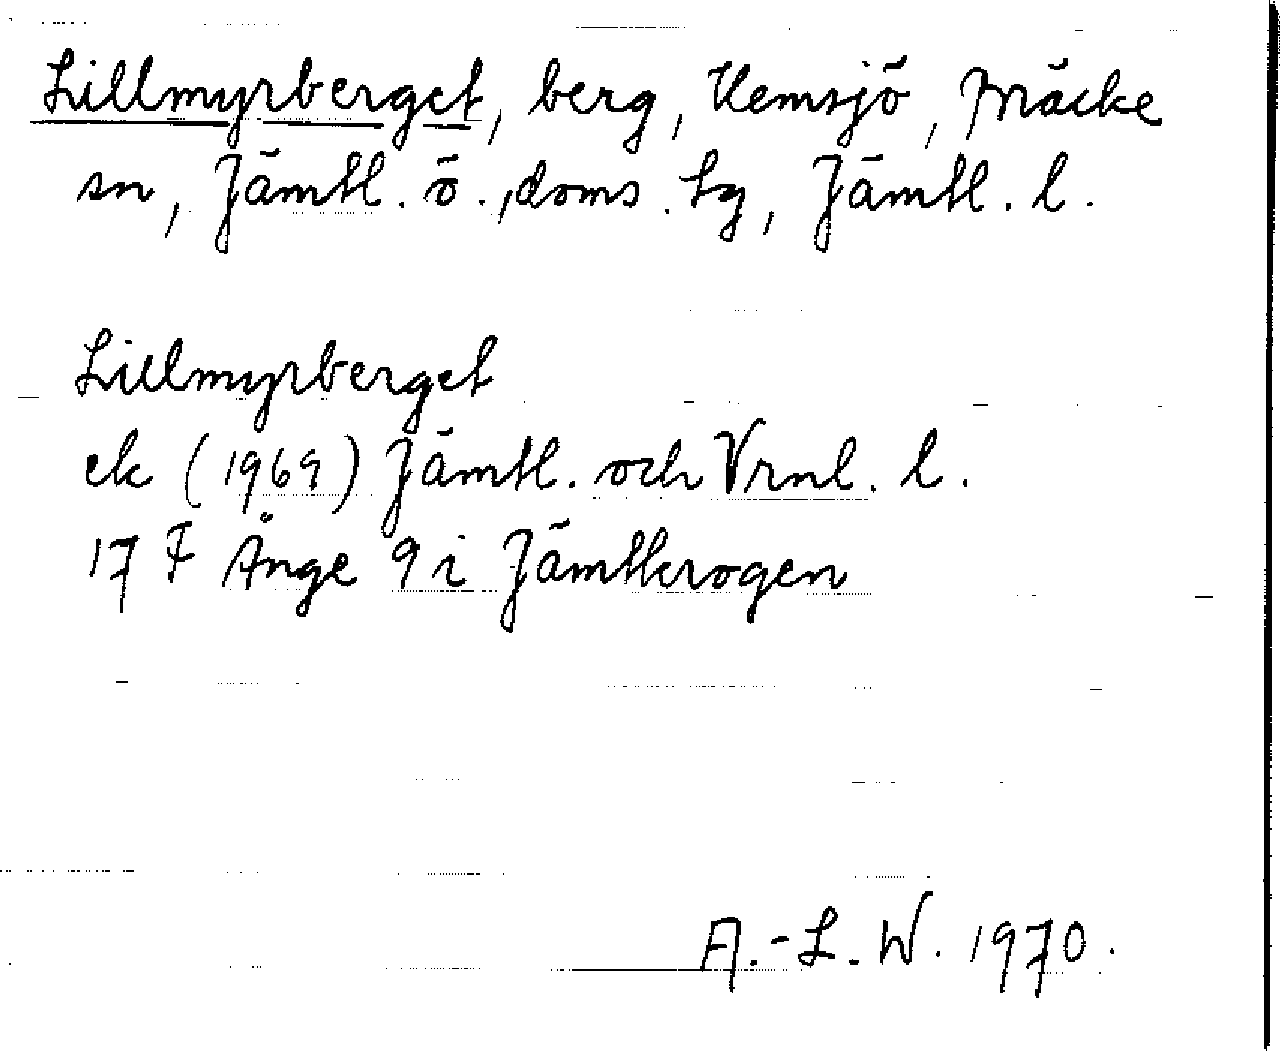 Lillmyrberget, berg, Hemsjö, Bräcke
sn, Jämtl. ö., doms. tg, Jämtl. l.
Lillmyrberget
ek (1969) Jämtl. och Vrnl. l.
17 F Ånge 9 i Jämtkrogen
A.-L. W. 1970.